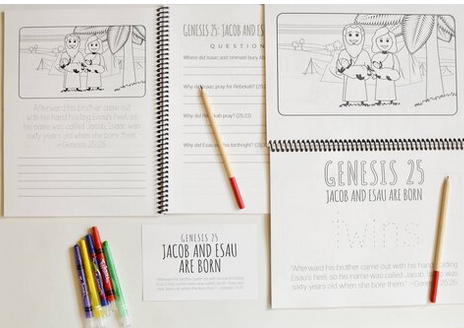 Afterward his brother came out
with his hand holding Esau's heel, so
his name was called Jacob. Isaac was
sixty years old when she bore them.
~Genesis 25:26
GENESIS 25: JACOB AND ES
QUESTION
Where did Isaac and
Why did Isaac pray for Rebekah? (25:21)
Why did pray? (25:22)
Why did Esau birthright? (25
GENESIS 25
JACOB AND ESAU
ARE BORN
GENESIS 25
JACOB AND ESAU ARE BORN
twins
"Afterward his brother came out with his hand holding
Esau's heel, so his name was called Jacob. Isaac was
sixty years old when she bore them." ~Genesis 25:26